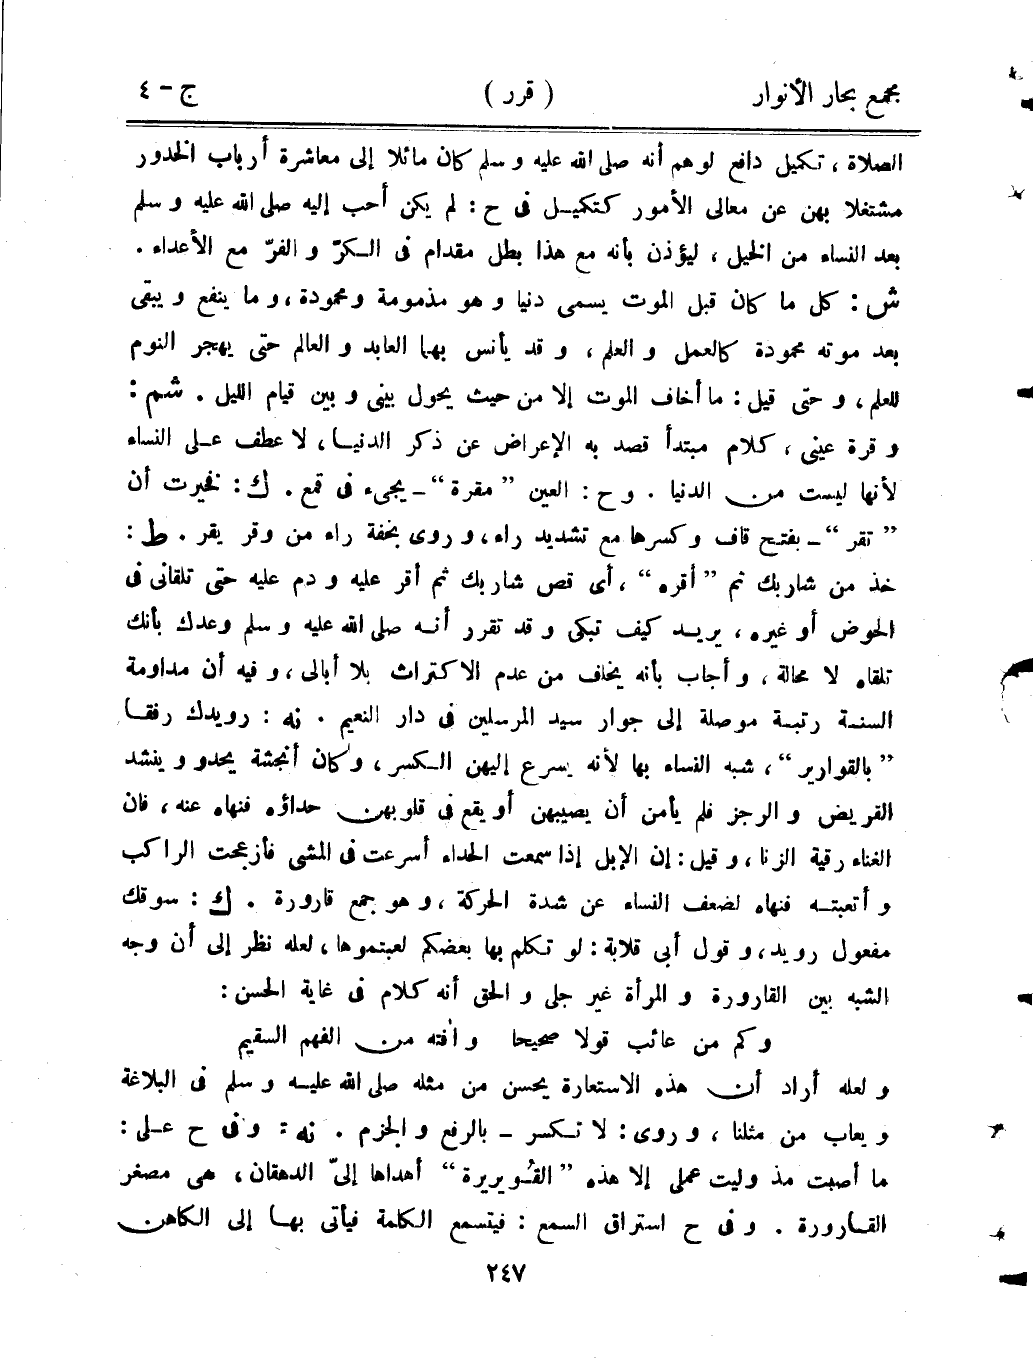 مجمع بحار الأنوار ( قرر ) ج - ٤
الصلاة ، تكميل دافع لوهم أنه صلى الله عليه و سلم كان مائلا إلى معاشرة أرباب الخدور
مشتغلا بهن عن معالى الأمور كتكميل فى ح : لم يكن أحب إليه صلى الله عليه و سلم
بعد النساء من الخيل ، ليؤذن بأنه مع هذا بطل مقدام فى الكرّ و الفرّ مع الأعداء .
ش : كل ما كان قبل الموت يسمى دنيا و هو مذمومة ومحمودة ، و ما ينفع و يبقى
بعد موته محمودة كالعمل و العلم ، و قد يأنس بهما العابد و العالم حتى يهجر النوم
للعلم ، و حتى قيل : ما أخاف الموت إلا من حيث يحول بينى و بين قيام الليل . شم :
و قرة عينى ، كلام مبتدأ قصد به الإعراض عن ذكر الدنيا ، لا عطف على النساء
لأنها ليست من الدنيا . و ح : العين ” مقرة “ ـ يجىء فى قمع . ك : فخيرت أن
” تقر “ ـ بفتح قاف و كسرها مع تشديد راء ، و روى بخفة راء من وقر يقر . ط :
خذ من شاربك ثم ” أقره “ ، أى قص شاربك ثم أقر عليه و دم عليه حتى تلقانى فى
الحوض أو غيره ، يريد كيف تبكى و قد تقرر أنه صلى الله عليه و سلم وعدك بأنك
تلقاه لا محالة ، و أجاب بأنه يخاف من عدم الاكتراث بلا أبالى ، و فيه أن مداومة
السنة رتبة موصلة إلى جوار سيد المرسلين فى دار النعيم . نه : رويدك رفقا
” بالقوارير “ ، شبه النساء بها لأنه يسرع إليهن الكسر ، وكان أنجشة يحدو و ينشد
القريض و الرجز فلم يأمن أن يصيبهن أو يقع فى قلوبهن حداؤه فنهاه عنه ، فان
الغناء رقية الزنا ، و قيل : إن الإبل إذا سمعت الحداء أسرعت فى المشى فأزعجت الراكب
و أتعبته فنهاه لضعف النساء عن شدة الحركة ، و هو جمع قارورة . ك : سوقك
مفعول رويد ، و قول أبى قلابة : لو تكلم بها بعضكم لعبتموها ، لعله نظر إلى أن وجه
الشبه بين القارورة و المرأة غير جلى و الحق أنه كلام فى غاية الحسن :
وكم من عائب قولا صحيحا و آفته من الفهم السقيم
و لعله أراد أن هذه الاستعارة يحسن من مثله صلى الله عليه و سلم فى البلاغة
و يعاب من مثلنا ، و روى : لا تكسر ـ بالرفع و الجزم . نه : و فى ح على :
ما أصبت مذ وليت عملى إلا هذه ” القُويريرة “ أهداها إلىّ الدهقان ، هى مصغر
القارورة . و فى ح استراق السمع : فيتسمع الكلمة فيأتى بها إلى الكاهن
٢٤٧